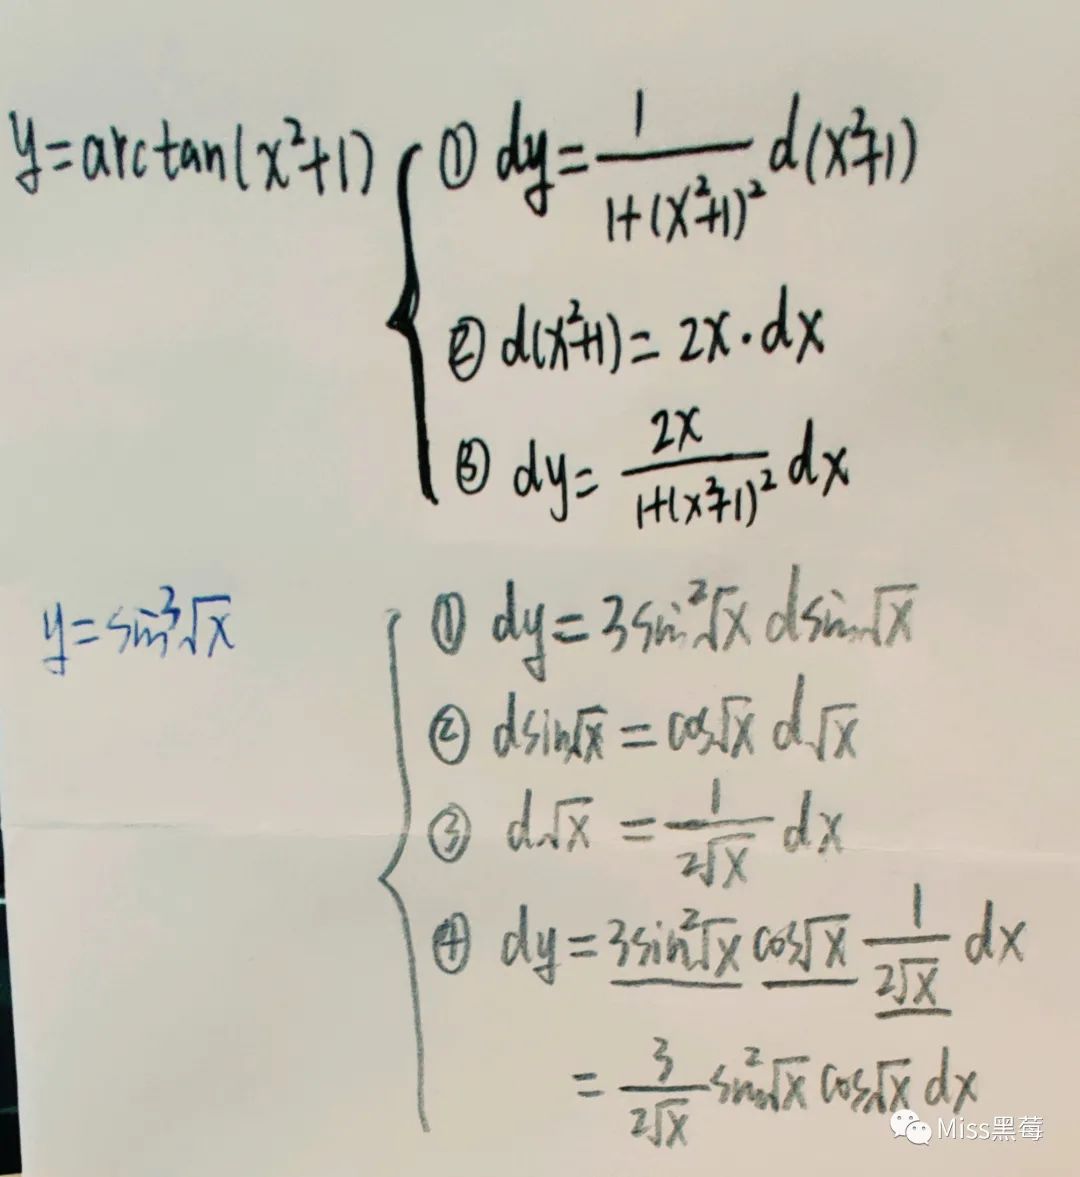 y=arctan(x²+1) ① dy=1/(1+(x²+1)²) d(x²+1)
② d(x²+1)=2x·dx
③ dy=2x/(1+(x²+1)²) dx
y=sin³√x ① dy=3sin²√x dsin√x
② dsin√x=cos√x d√x
③ d√x=1/(2√x) dx
④ dy=3sin²√x cos√x 1/(2√x) dx
=3/(2√x) sin²√x cos√x dx
Miss黑莓